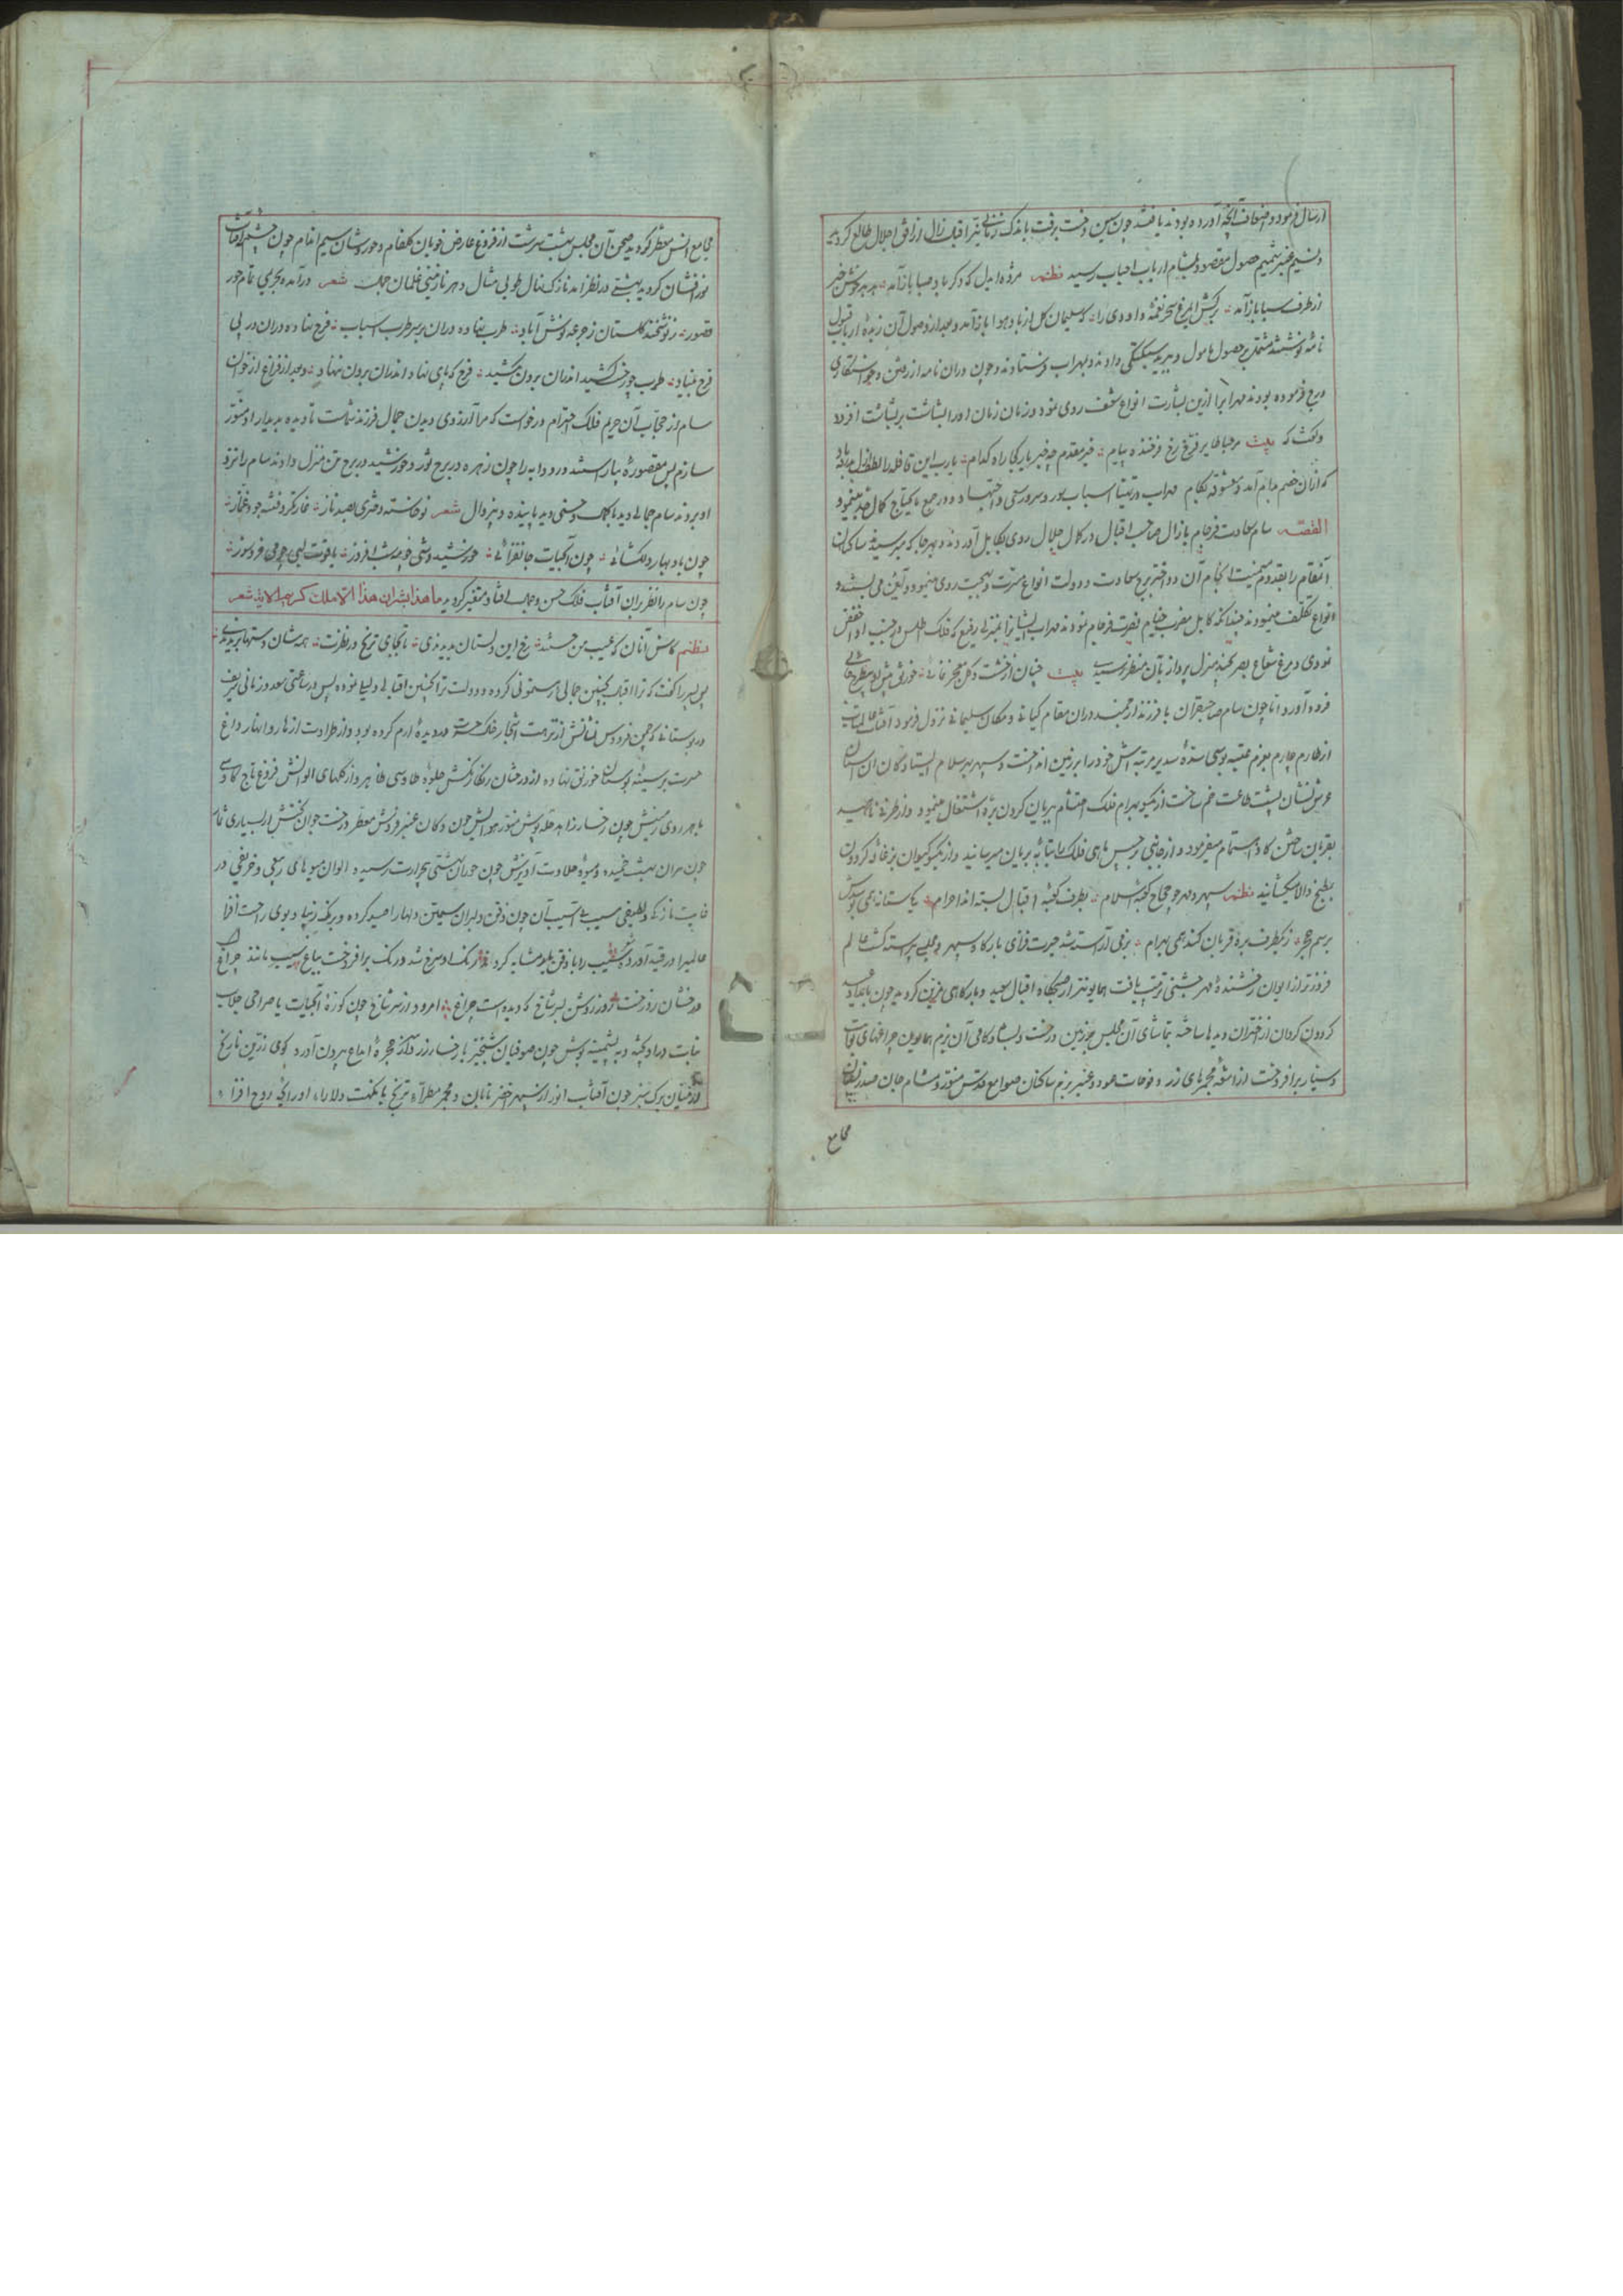 ارسال فرمود و اضعاف آنچه آورده بودند یافتند چون سین دخت برفت باندک زمانی نیر اقبال زال از افق اجلال طالع کردید
و نسیم عنبر شمیم حصول مقصود بمشام ارباب احباب رسید نظم مژده ایدل که دکر باد صبا بازآمد هدهد خوش خبر
از طرف سبا بازآمد برکش ای مرغ سحر نغمه داودی را که سلیمان کل از باد هوا بازآمد و بعد از وصول آن زبدۀ ارباب قبول
نامه نوشتند مشتمل بر حصول مامول و بپریه سبکتکی دادند و بمهراب فرستادند و چون دران نامه از رفتن و خواستکاری
فرموده بودند مهراب را ازین بشارت انواع شعف روی نمود و زمان زمان اورا بشاشت بر بشاشت افزود
و کفت که بیت مرحبا طایر فرخ رخ فرخنده پیام خیر مقدم چه خبر یار کجا راه کدام یارب این قافله را لطف ازل بدرقه باد
که ازان خصم بدام آمد و معشوقه بکام مهراب در تهیۀ اسباب سور و سرور سعی و اجتهاد و در جمع مایحتاج کمال جد مینمود
القصه سام سعادت فرجام با زال صاحب اقبال در کمال جلال روی بکابل آوردند و بهر جا که میرسیدند ساکنان
آنمقام را بقدوم میمنت انجام آن دو اختر برج سعادت و دولت انواع مسرت و بهجت روی مینمود و آئین می بستند و
انواع تکلف مینمودند چندانکه کابل مضرب خیام نصرت فرجام نمودند مهراب ایشانرا بمنزلی رفیع که فلک اطلس در جنب او اخفض
نمودی و مرغ شعاع بصر بچند منزل پرواز بآن منظر نرسیدی بیت
فرود آورد اما چون سام صاحبقران با فرزند ارجمند دران مقام کیانی و مکان سلیمانی نزول فرمود آفتاب عالمتاب
از طارم چارم بعزم عتبه بوسی سدۀ سدیر مرتبه اش خود را بر زمین انداخت و سپهر بر سلام ایستادکان آن آستان
عرش نشان پشت طاعت خم ساخت از یکسو بهرام فلک احتشام ببریان کردن بره اشتغال مینمود و از طرفی ناهید
بقربان ساختن کاو اهتمام میفرمود و از جانبی برجیس ماهی فلک را بتابه بریان میرسانید و از یکسو کیوان بزغاله کردون
بمطبخ والا میکشانید نظم سپهر و مهر چو حجاج کعبۀ اسلام بطرف کعبۀ اقبال بسته اند احرام یک آستانه همی بوسدش
برسم حجر ز یکطرف بره قربان کند همی بهرام بزمی آراسته شد حیرت فزای بارکاه سپهر و مجلسی پیراسته کشت عالم
فروزتر از ایوان رخشندۀ مهر جشنی ترتیب یافت همایونتر از صبحکاه اقبال سعید و بارکاهی مزین کردید چون بامداد عید
کردون کردان از اختران دیدها ساخته بتماشای آن مجلس چو زمین درخت و بساط کامی آن بزم همایون چراغهای ثوابت
و سیار برافروخت از اشعه مجمرهای زر و فوحات عود و عنبر بزم ساکنان صوامع قدس منور و مشام جان صدر نشینان
مجامع
مجامع انس معطر کردید صحن آن مجلس بهشت سرشت از فروغ عارض خوبان کلفام و حوروشان سیم اندام چون چشمۀ آفتاب
نورافشان کردید بهشتی در نظر آمد نازک نهال طوبی مثال و هر نازنینی غلمان جمال شعر درآمده بحریمی تمام حور
قصور ز نوشخند کلستان ز جرعه نوش آباد طرب نهاده دران بر سر طرب اسباب فرح نهاده دران در پی
فرح بنیاد طرب چو رخت کشید اندران برون نکشید فرح که پای نهاد اندران برون ننهاد و بعد از فراغ از خوان
سام از حجاب آن حریم فلک احترام درخواست که مرا آرزوی دیدن جمال فرزند شماست تا دیده بدیدار او منور
سازم پس مقصوره بیاراستند و رودابه را چون زهره در برج ثور و خورشید در برج حمل منزل دادند سام را نزد
او بردند سام جمالی دید با کمال و حسنی دید پاینده و بیزوال شعر نوخاسته دختری بصد ناز غارتکر و فتنه جو و غماز
چون باد بهار دلکشائی چون آب حیات جانفزائی خورشید وشی و مه شب افروز یاقوت لبی چو می فرح سوز
چون سام را نظر بران آفتاب فلک حسن و جمال افتاد متغیر کردید ما هذا بشرا ان هذا الا ملک کریم الایه شعر
نظم کاش آنان که عیب من جستند رخ این دلستان بدیدندی تا بجای ترنج در نظرت همه شان دستها بریدندی
پس پسر را کفت که ترا اقبال بچنین جمالی رهنمونی کرده و دولت ترا بچنین اقبالی دلیل نموده پس در ساعتی سعد و زمانی شریف
در بوستانی که چمن فردوس نشانش از نزهت اشجار خاک حسرت در دیدۀ ارم کرده بود و از طراوت ازهار و انهار داغ
حسرت بر سینۀ بوستان خورنق نهاده از درختان رنکارنکش جلوۀ طاوسی ظاهر و از کلهای الوانش فروغ تاج کاوسی
باهر روی زمینش چون رخسار زاهد حله پوش منور هوایش چون دکان عنبر فروش معطر درخت جوان بختش از بسیاری ثمار
چون پیران پشت خمیده و میوۀ حلاوت آمیزش چون حوران بهشتی بحرارت رسیده الوان میوهای ربیعی و خریفی در
غایت نازکی و لطیفی سیب بی آسیب آن چون ذقن دلبران سیمتن دلها را صید کرده و برنک زیبا و بوی راحت افزا
عالمیرا در قید آورده سیب را با ذقن یار مشابه کردند رنک او سرخ شد و رنک برافروخت بباغ سیب مانند چراغ
درخشان ز درخت روز روشن بسر شاخ که دیده است چراغ امرود از سر شاخ چون کوزۀ آب حیات یا صراحی جلاب
نبات درآویخته و به پشمینه پوش چون صوفیان شبخیز با رخسار زرد سر از حجرۀ ابداع بیرون آورده کوی زرین نارنج
از میان برک سبز چون آفتاب انور از سپهر اخضر تابان و مجمر مطلای ترنج با نکهت دلارا اورایحۀ روح افزا